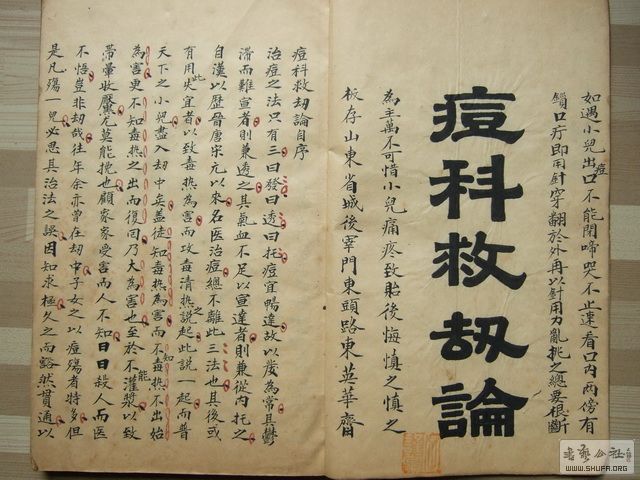 如遇小兒出痘口不能閉啼哭不止連看口內兩傍有
鎖口疔即用針穿翻於外再以針用力亂挑之總要根斷
痘科救刼論
為主萬不可惜小兒痛疼致貽後悔慎之慎之
板存山東省城後宰門東頭路東英華齋
痘科救刼論自序
治痘之法只有三曰發曰透曰托痘宜暢達故以發為常其鬱
滯而難宣者則兼透之其氣血不足以宣達者則兼從內托之
自漢以歷晉唐宋元以來名醫治痘總不離此三法也其後或
有用此失宜者以致毒熱為害而攻毒清熱之說起此說一起而普
天下之小兒盡入刼中矣蓋徒知毒熱為害而不知毒熱不出始
為害更不知毒熱之出而復回乃大為害也至於不能灌漿以致
帶暈收靨尤莫能挽也顧家家受害而人不知日日殺人而醫
不悟豈非刼哉往年余亦曾在刼中子女之以痘殤者特多但
是凡殤一兒必思其治法之誤因知求極久之而豁然貫通以
书艺公社
WWW.SHUFA.ORG